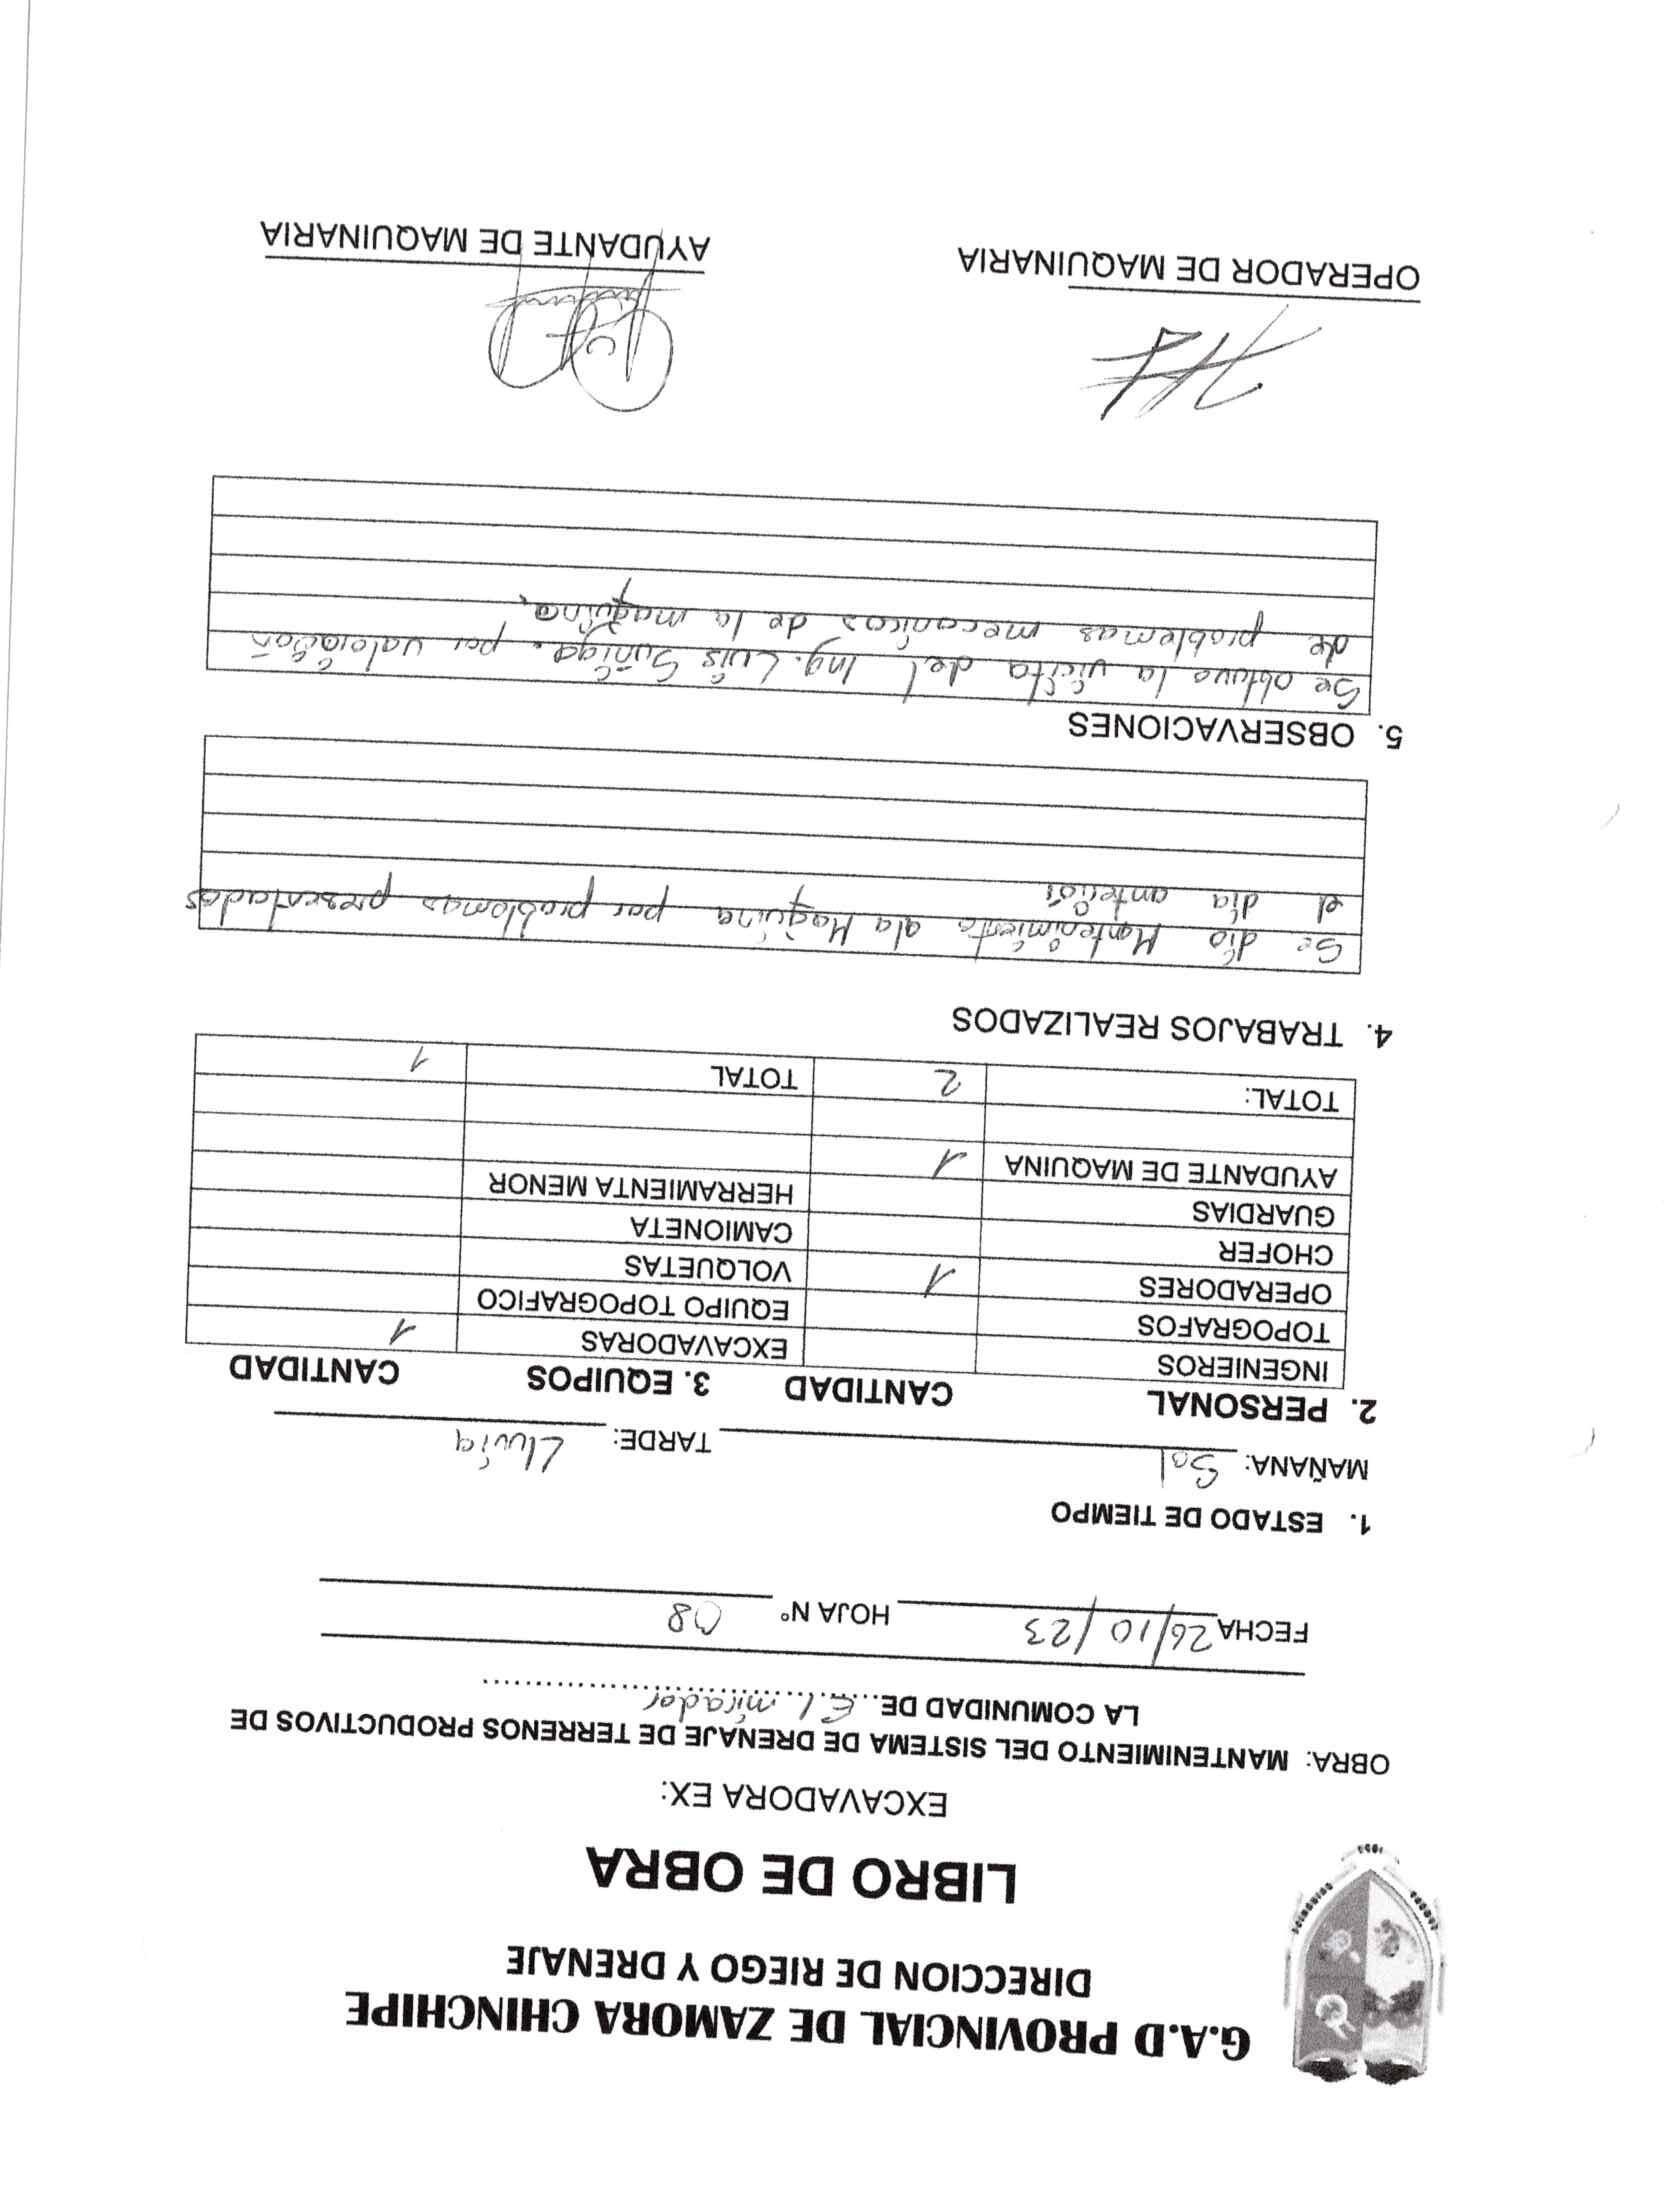 G.A.D PROVINCIAL DE ZAMORA CHINCHIPE
DIRECCION DE RIEGO Y DRENAJE
LIBRO DE OBRA
EXCAVADORA EX:
OBRA: MANTENIMIENTO DEL SISTEMA DE DRENAJE DE TERRENOS PRODUCTIVOS DE
LA COMUNIDAD DE El mirador
FECHA 26/10/23 HOJA N° 08
1. ESTADO DE TIEMPO
MAÑANA: Sol TARDE: Lluvia
2. PERSONAL CANTIDAD 3. EQUIPOS CANTIDAD
INGENIEROS EXCAVADORAS 1
TOPOGRAFOS EQUIPO TOPOGRAFICO
OPERADORES 1 VOLQUETAS
CHOFER CAMIONETA
GUARDIAS HERRAMIENTA MENOR
AYUDANTE DE MAQUINA 1
TOTAL: 2 TOTAL 1
4. TRABAJOS REALIZADOS
Se dio Mantenimiento ala Maquina por problemas presentados
el día anterior
5. OBSERVACIONES
Se obtuvo la vicita del Ing. Luis Suñiga. por valoración
de problemas mecanicos de la maquina.
OPERADOR DE MAQUINARIA AYUDANTE DE MAQUINARIA